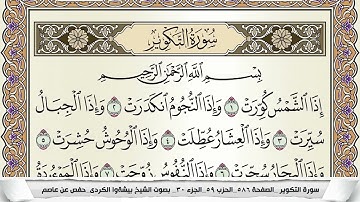 سُورَةُ التَّكْوِيرِ
بِسْمِ اللَّهِ الرَّحْمَٰنِ الرَّحِيمِ
إِذَا الشَّمْسُ كُوِّرَتْ ١ وَإِذَا النُّجُومُ انكَدَرَتْ ٢ وَإِذَا الْجِبَالُ
سُيِّرَتْ ٣ وَإِذَا الْعِشَارُ عُطِّلَتْ ٤ وَإِذَا الْوُحُوشُ حُشِرَتْ ٥
وَإِذَا الْبِحَارُ سُجِّرَتْ ٦ وَإِذَا النُّفُوسُ زُوِّجَتْ ٧ وَإِذَا الْمَوْءُودَةُ
سورة التكوير . الصفحة ٥٨٦ . الحزب ٥٩ . الجزء ٣٠ . بصوت الشيخ بيشةوا الكردي . حفص عن عاصم